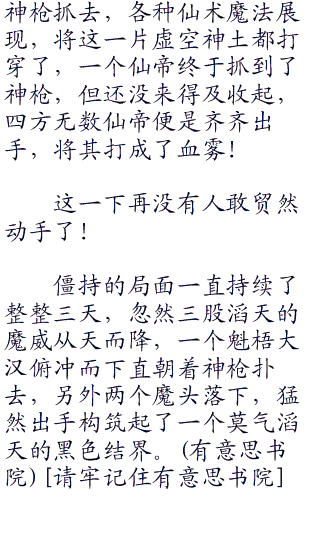 神枪抓去，各种仙术魔法展
现，将这一片虚空神土都打
穿了，一个仙帝终于抓到了
神枪，但还没来得及收起，
四方无数仙帝便是齐齐出
手，将其打成了血雾！
这一下再没有人敢贸然
动手了！
僵持的局面一直持续了
整整三天，忽然三股滔天的
魔威从天而降，一个魁梧大
汉俯冲而下直朝着神枪扑
去，另外两个魔头落下，猛
然出手构筑起了一个莫气滔
天的黑色结界。（有意思书
院）[请牢记住有意思书院]